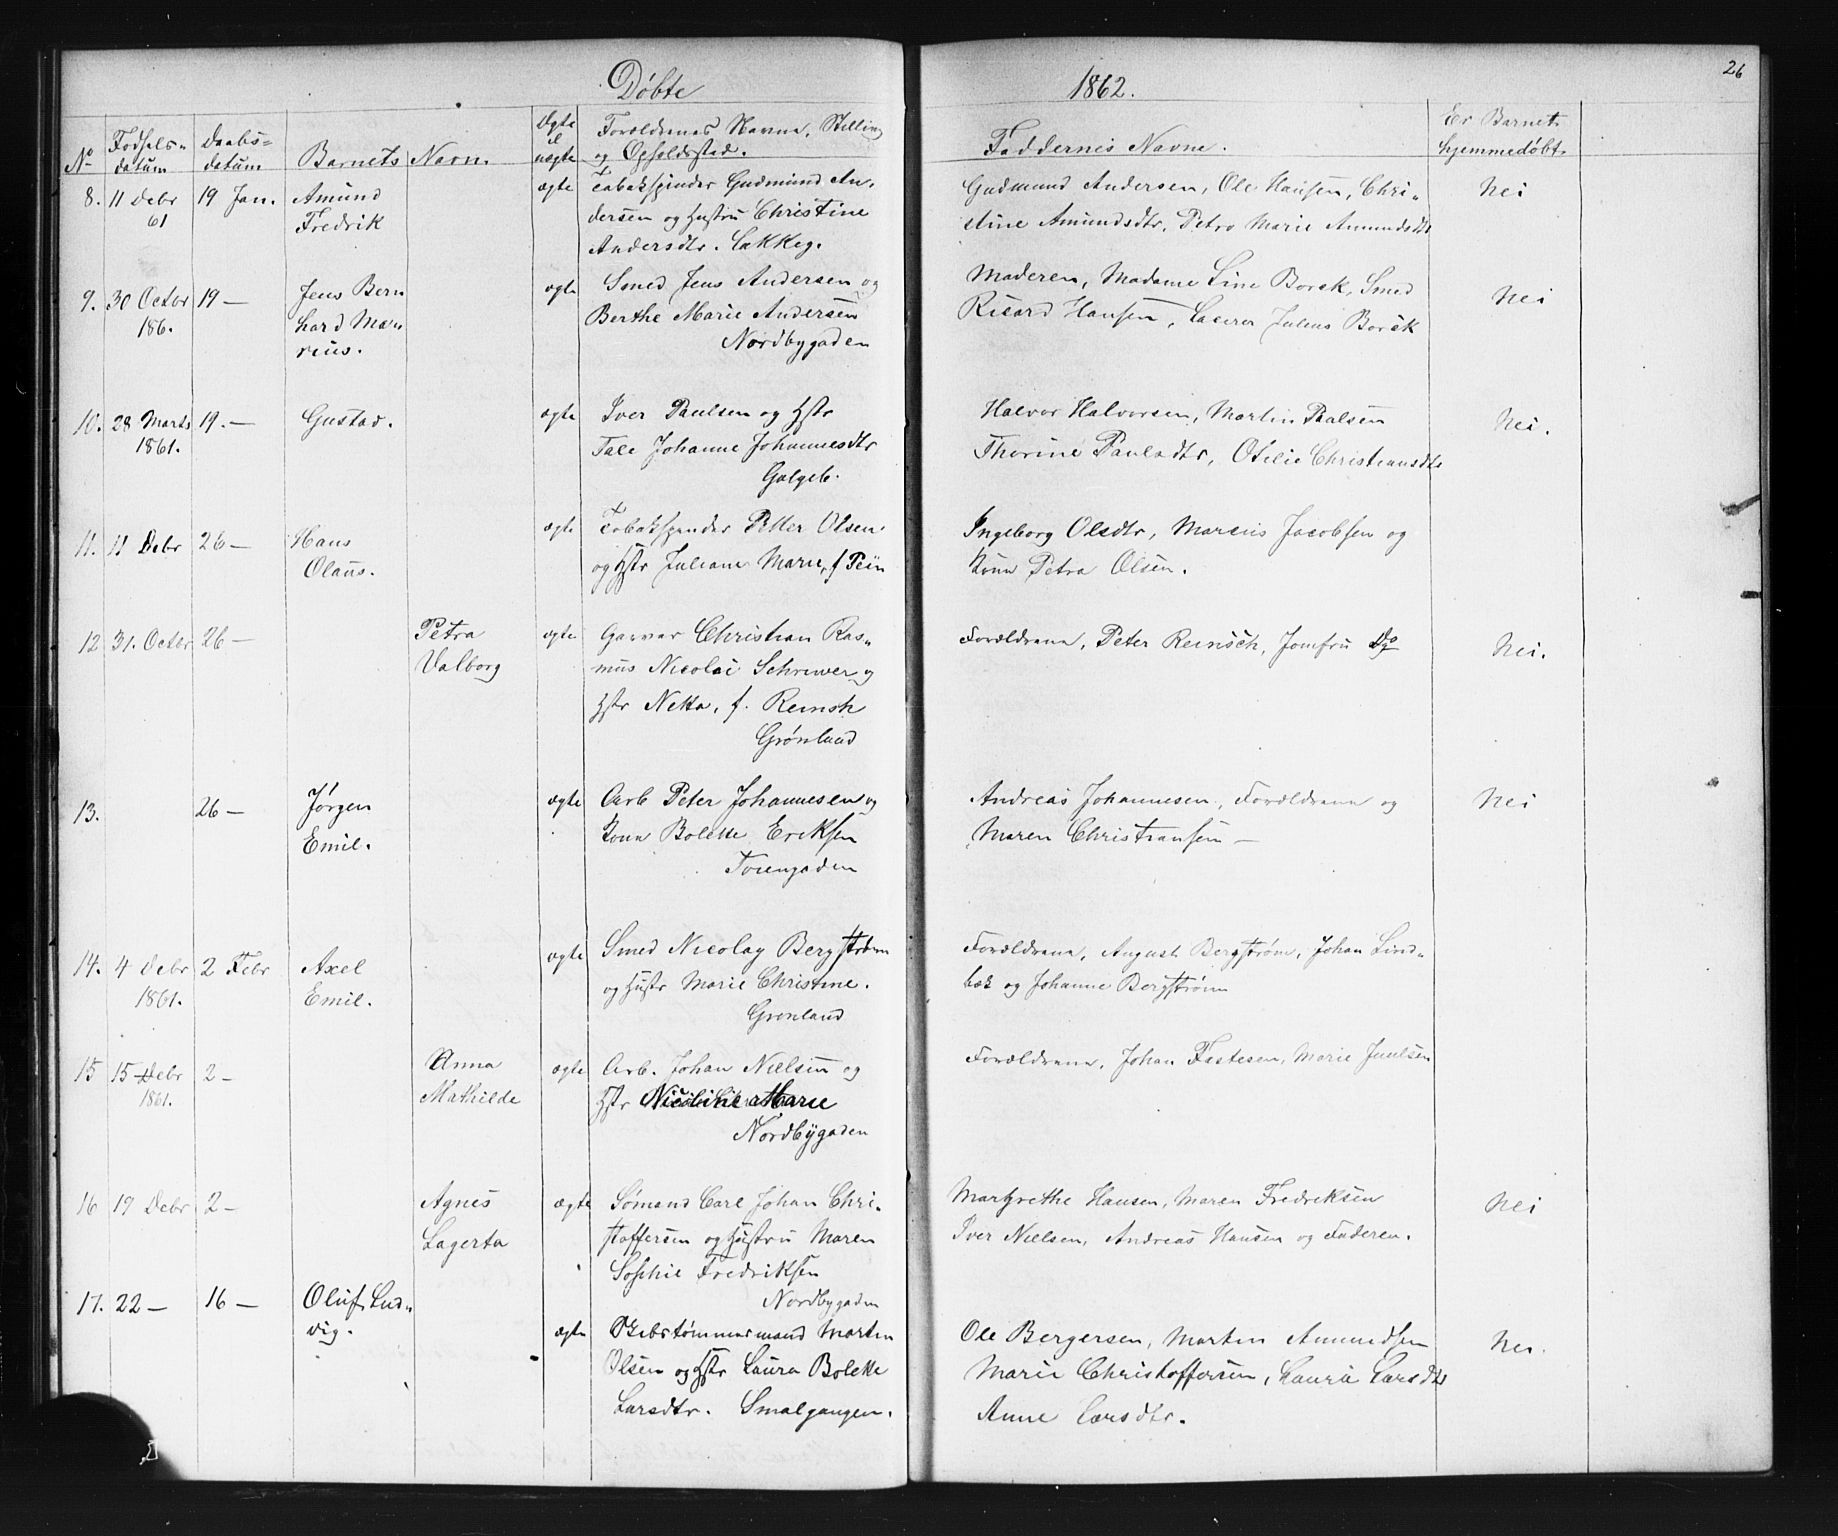 Døbte
1862.
26
No
Fødsels-
datum
Daabs-
datum
Barnets Navn.
Ægte
el
uægte
Forældrenes Navne, Stilling
og Opholdsstad.
Faddernes Navne.
Er Barnet
hjemmedøbt.
8. 11 Debr 19 Jan. Amund ægte Tobakspinder Gudmund An-
61 Fredrik dersen og Hustru Christine
Andersdtr. Lakkeg.
Gudmund Andersen, Ole Hansen, Chri- Nei
stine Amundsdtr, Petro Marie Amundsdtr
9. 30 Octbr 19 — Jens Bern ægte Smed Jens Andersen og
186. hard Mar- Berthe Marie Andersen
rius. Nordbygaden
Maderen, Madame Line Borck, Smed Nei
Ricard Hansen, Julius Borck
10. 28 Marts 19. — Gustav. ægte Iver Paulsen og Hstr
1861. Tale Johanne Johannesdtr
Galgeb.
Halvor Halvorsen, Martin Paalsen Nei.
Thorine Paulsdtr, Otilie Christiansdtr
11. 11 Debr 26 — Hans ægte Tobakspinder Petter Olsen
Olaus. og Hstr Juliane Marie, f
Ingeborg Olsdtr, Marcus Jacobsen og
Kone Petra Olsen.
12 31. Octbr 26 — Petra ægte Garver Christian Ras-
Valborg mus Nicolai Schriwer og
Hstr Netta, f. Reinsch
Grønland
Forældrene, Peter Reinsch, Jomfru Do Nei.
13. 26 — Jørgen ægte Arb Peter Johannesen og
Emil. Kone Bolette Eriksen
Torvengaden
Andreas Johannesen, Forældrene og Nei
Maren Christiansen —
14. 4 Debr 2 Febr Axel ægte Smed Nicolay Bergstrøm
1861. Emil. og Hustr Marie Christine.
Grønland
Forældrene, August Bergstrøm, Johan Lind-
bæk og Johanne Bergstrøm
15 15 Debr 2 — Anna ægte Arb. Johan Nielsen og
1861. Mathilde Hstr Nicoline Marie
Nordbygaden
Forældrene, Johan Fastesen, Marie Juulsen
16 19 Debr 2 — Agnes ægte Sømand Carl Johan Chri-
Lagerta stoffersen og Hustru Maren
Sophie Fredriksen
Nordbygaden
Margrethe Hansen, Maren Fredriksen Nei
Iver Nielsen, Andreas Hansen og Faderen.
17. 22 — 16 — Oluf Lud-
vig. ægte Skibstømmermand Morten
Olsen og Hstr Laura Bolette
Larsdtr. Smalgangen.
Ole Bergersen, Martin Amundsen Nei.
Marie Christoffersen, Laura Larsdtr
Anne Larsdtr.